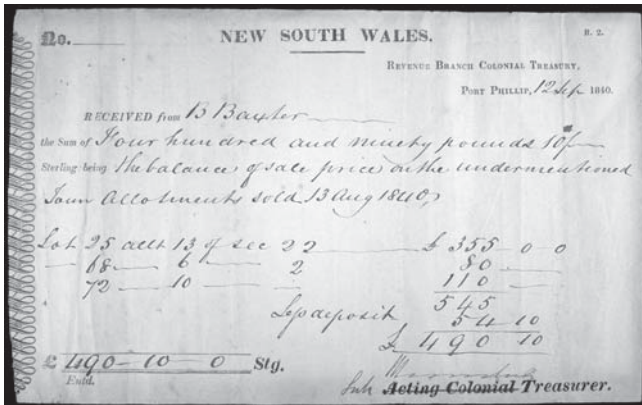 No.
NEW SOUTH WALES.
B. 2.
REVENUE BRANCH COLONIAL TREASURY,
PORT PHILLIP, 12 Sep 1840.
RECEIVED from B Baxter
the Sum of Four hundred and ninety pounds 10/-
Sterling being the balance of sale price on the undermentioned
Town Allotments sold 13 Aug 1840,
Lot 25 allt 13 of sec 22 £ 355 - 0 - 0
— 68 — 6 — 2 80
72 — 10 — 110
545
Less deposit 54 10
£ 490 10
£ 490 - 10 - 0 Stg.
Entd.
Sub Acting Colonial Treasurer.